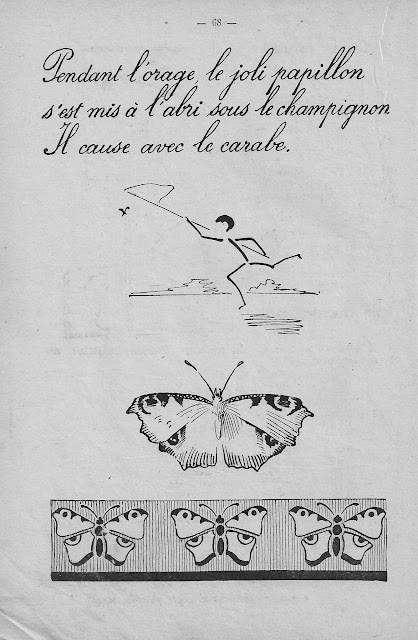 — 68 —
Pendant l'orage, le joli papillon
s'est mis à l'abri sous le champignon
Il cause avec le carabe.